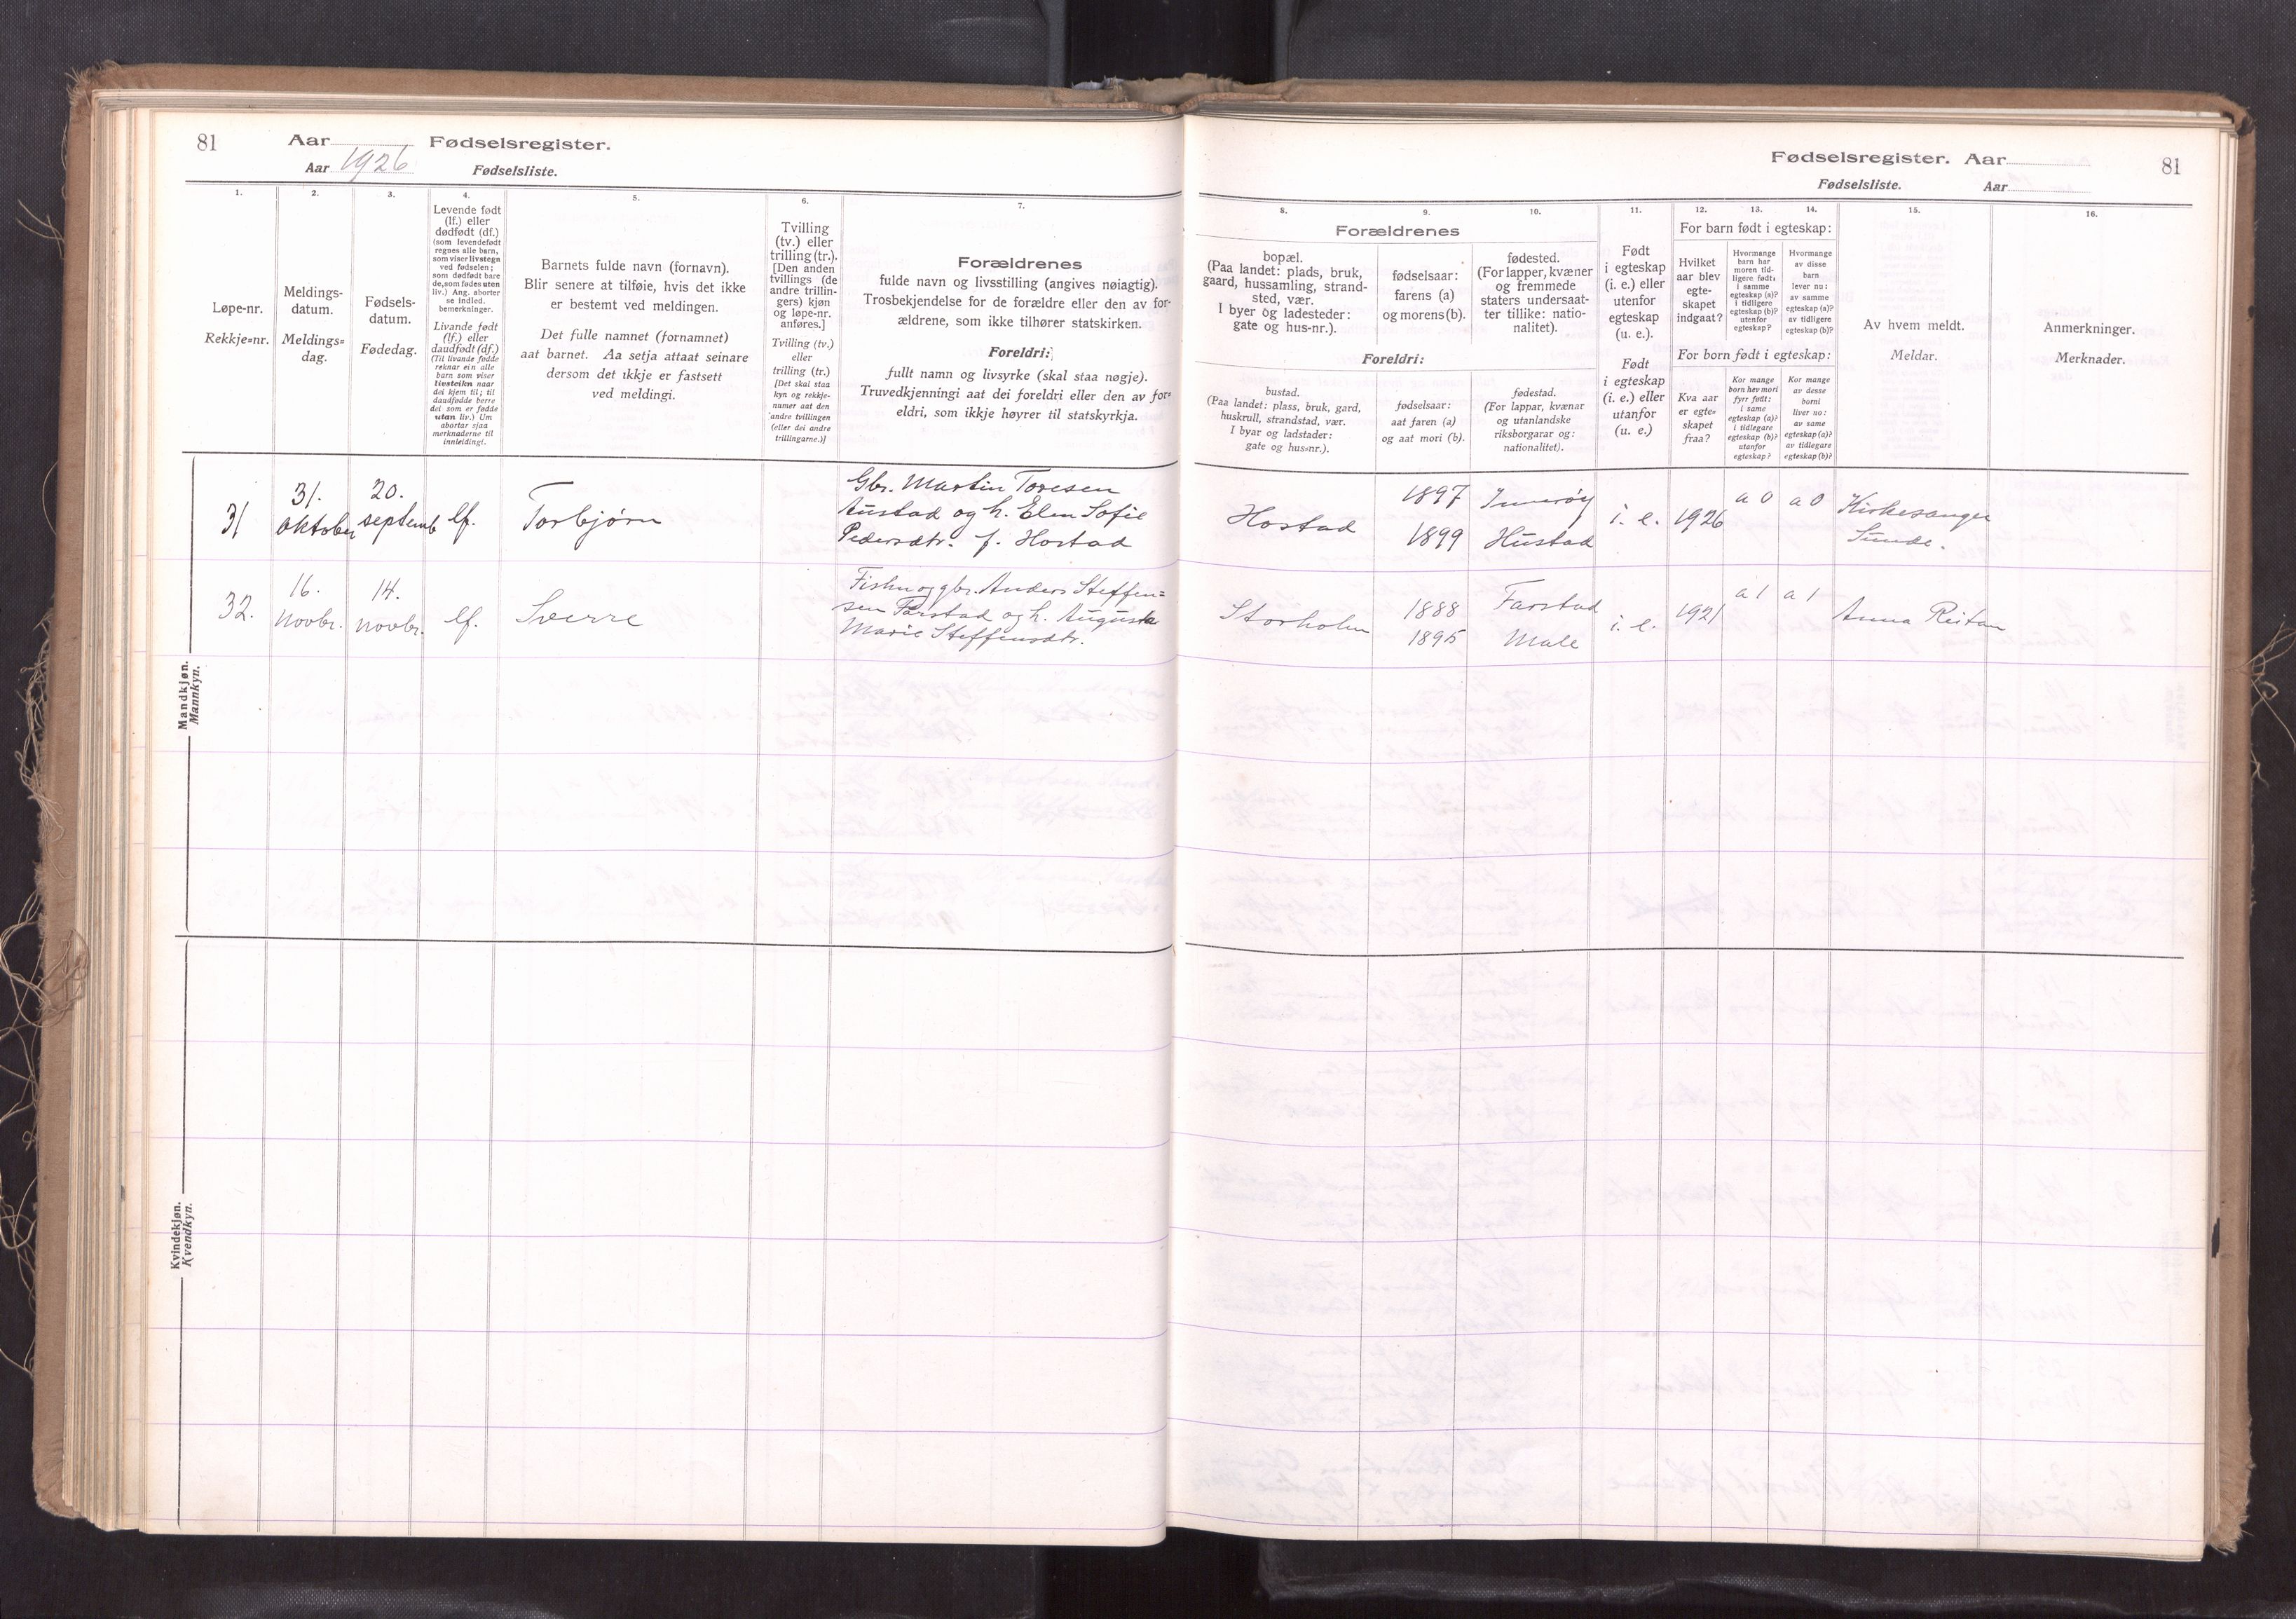 81
Aar
Fødselsregister.
Aar 1926
Fødselsliste.
Fødselsregister. Aar
81
Fødselsliste.
Aar
1.
2.
3.
4.
5.
6.
7.
Løpe-nr.
Rekkje=nr.
Meldings-
datum.
Meldings=
dag.
Fødsels-
datum.
Fødedag.
Levende født
(lf.) eller
dødfødt (df.)
(som levendefødt
regnes alle barn,
som viser livstegn
ved fødselen;
som dødfødt bare
de, som fødes uten
liv.) Ang. aborter
se indled.
bemerkninger.
Livande født
(lf.) eller
daudfødt (df.)
(Til livande fødde
reknar ein alle
barn som viser
livsteikn naar
dei kjem til; til
daudfødde berre
dei som er fødde
utan liv.) Um
abortar sjaa
merknaderne til
innleidingi.
Barnets fulde navn (fornavn).
Blir senere at tilføie, hvis det ikke
er bestemt ved meldingen.
Det fulle namnet (fornamnet)
aat barnet. Aa setja attaat seinare
dersom det ikkje er fastsett
ved meldingi.
Tvilling
(tv.) eller
trilling (tr.).
[Den anden
tvillings (de
andre trillin-
gers) kjøn
og løpe-nr.
anføres.]
Tvilling (tv.)
eller
trilling (tr.)
[Det skal staa
kyn og rekkje-
numer aat den
andre tvillingen
(eller dei andre
trillingarne.)]
Forældrenes
fulde navn og livsstilling (angives nøiagtig).
Trosbekjendelse for de forældre eller den av for-
ældrene, som ikke tilhører statskirken.
Foreldri:
fullt namn og livsyrke (skal staa nøgje).
Truvedkjenningi aat dei foreldri eller den av for=
eldri, som ikkje høyrer til statskyrkja.
8.
9.
10.
11.
12.
13.
14.
15.
16.
Forældrenes
bopæl.
(Paa landet: plads, bruk,
gaard, hussamling, strand-
sted, vær.
I byer og ladesteder:
gate og hus-nr.).
fødselsaar:
farens (a)
og morens (b).
fødested.
(For lapper, kvæner
og fremmede
staters undersaat-
ter tillike: natio-
nalitet).
Foreldri:
bustad.
(Paa landet: plass, bruk, gard,
huskrull, strandstad, vær.
I byar og ladstader:
gate og hus=nr.).
fødselsaar:
aat faren (a)
og aat mori (b).
fødestad.
(For lappar, kvænar
og utanlandske
riksborgarar og:
nationalitet).
Født
i egteskap
(i. e.) eller
utenfor
egteskap
(u. e.).
Født
i egteskap
(i. e.) eller
utanfor
(u. e.)
For barn født i egteskap:
Hvilket
aar blev
egte-
skapet
indgaat?
Hvormange
barn har
moren tid-
ligere født:
i samme
egteskap (a)?
i tidligere
egteskap (b)?
utenfor
egteskap?
Hvormange
av disse
barn
lever nu:
av samme
egteskap (a)?
av tidligere
egteskap (b)?
For born født i egteskap:
Kva aar
er egte=
skapet
fraa?
Kor mange
born hev mori
fyrr født:
i same
egteskap (a)?
i tidlegare
egteskap (b)?
utanfor
egteskap?
Kor mange
av desse
borni
liver no:
av same
egteskap (a)?
av tidlegare
egteskap (b)?
Av hvem meldt.
Meldar.
Anmerkninger.
Merknader.
Mandkjøn.
Mannkyn.
31
31.
oktober
20.
septemb
lf.
Torbjørn
Gbr. Martin Toresen
Austad og h. Elen Sofie
Pedersdtr. f. Hostad
Hostad
1897
1899
Inderøy
Hustad
i. e.
1926
a 0
a 0
Kirkesanger
Sunde.
32.
16.
novbr.
14.
novbr.
lf.
Sverre
Fisker og gbr. Anders Steffen=
sen Farstad og h. Augusta
Marie Steffensdtr.
Storholm
1888
1895
Farstad
Male
i. e.
1921
a 1
a 1
Anna Reitan
Kvindekjøn.
Kvendkyn.